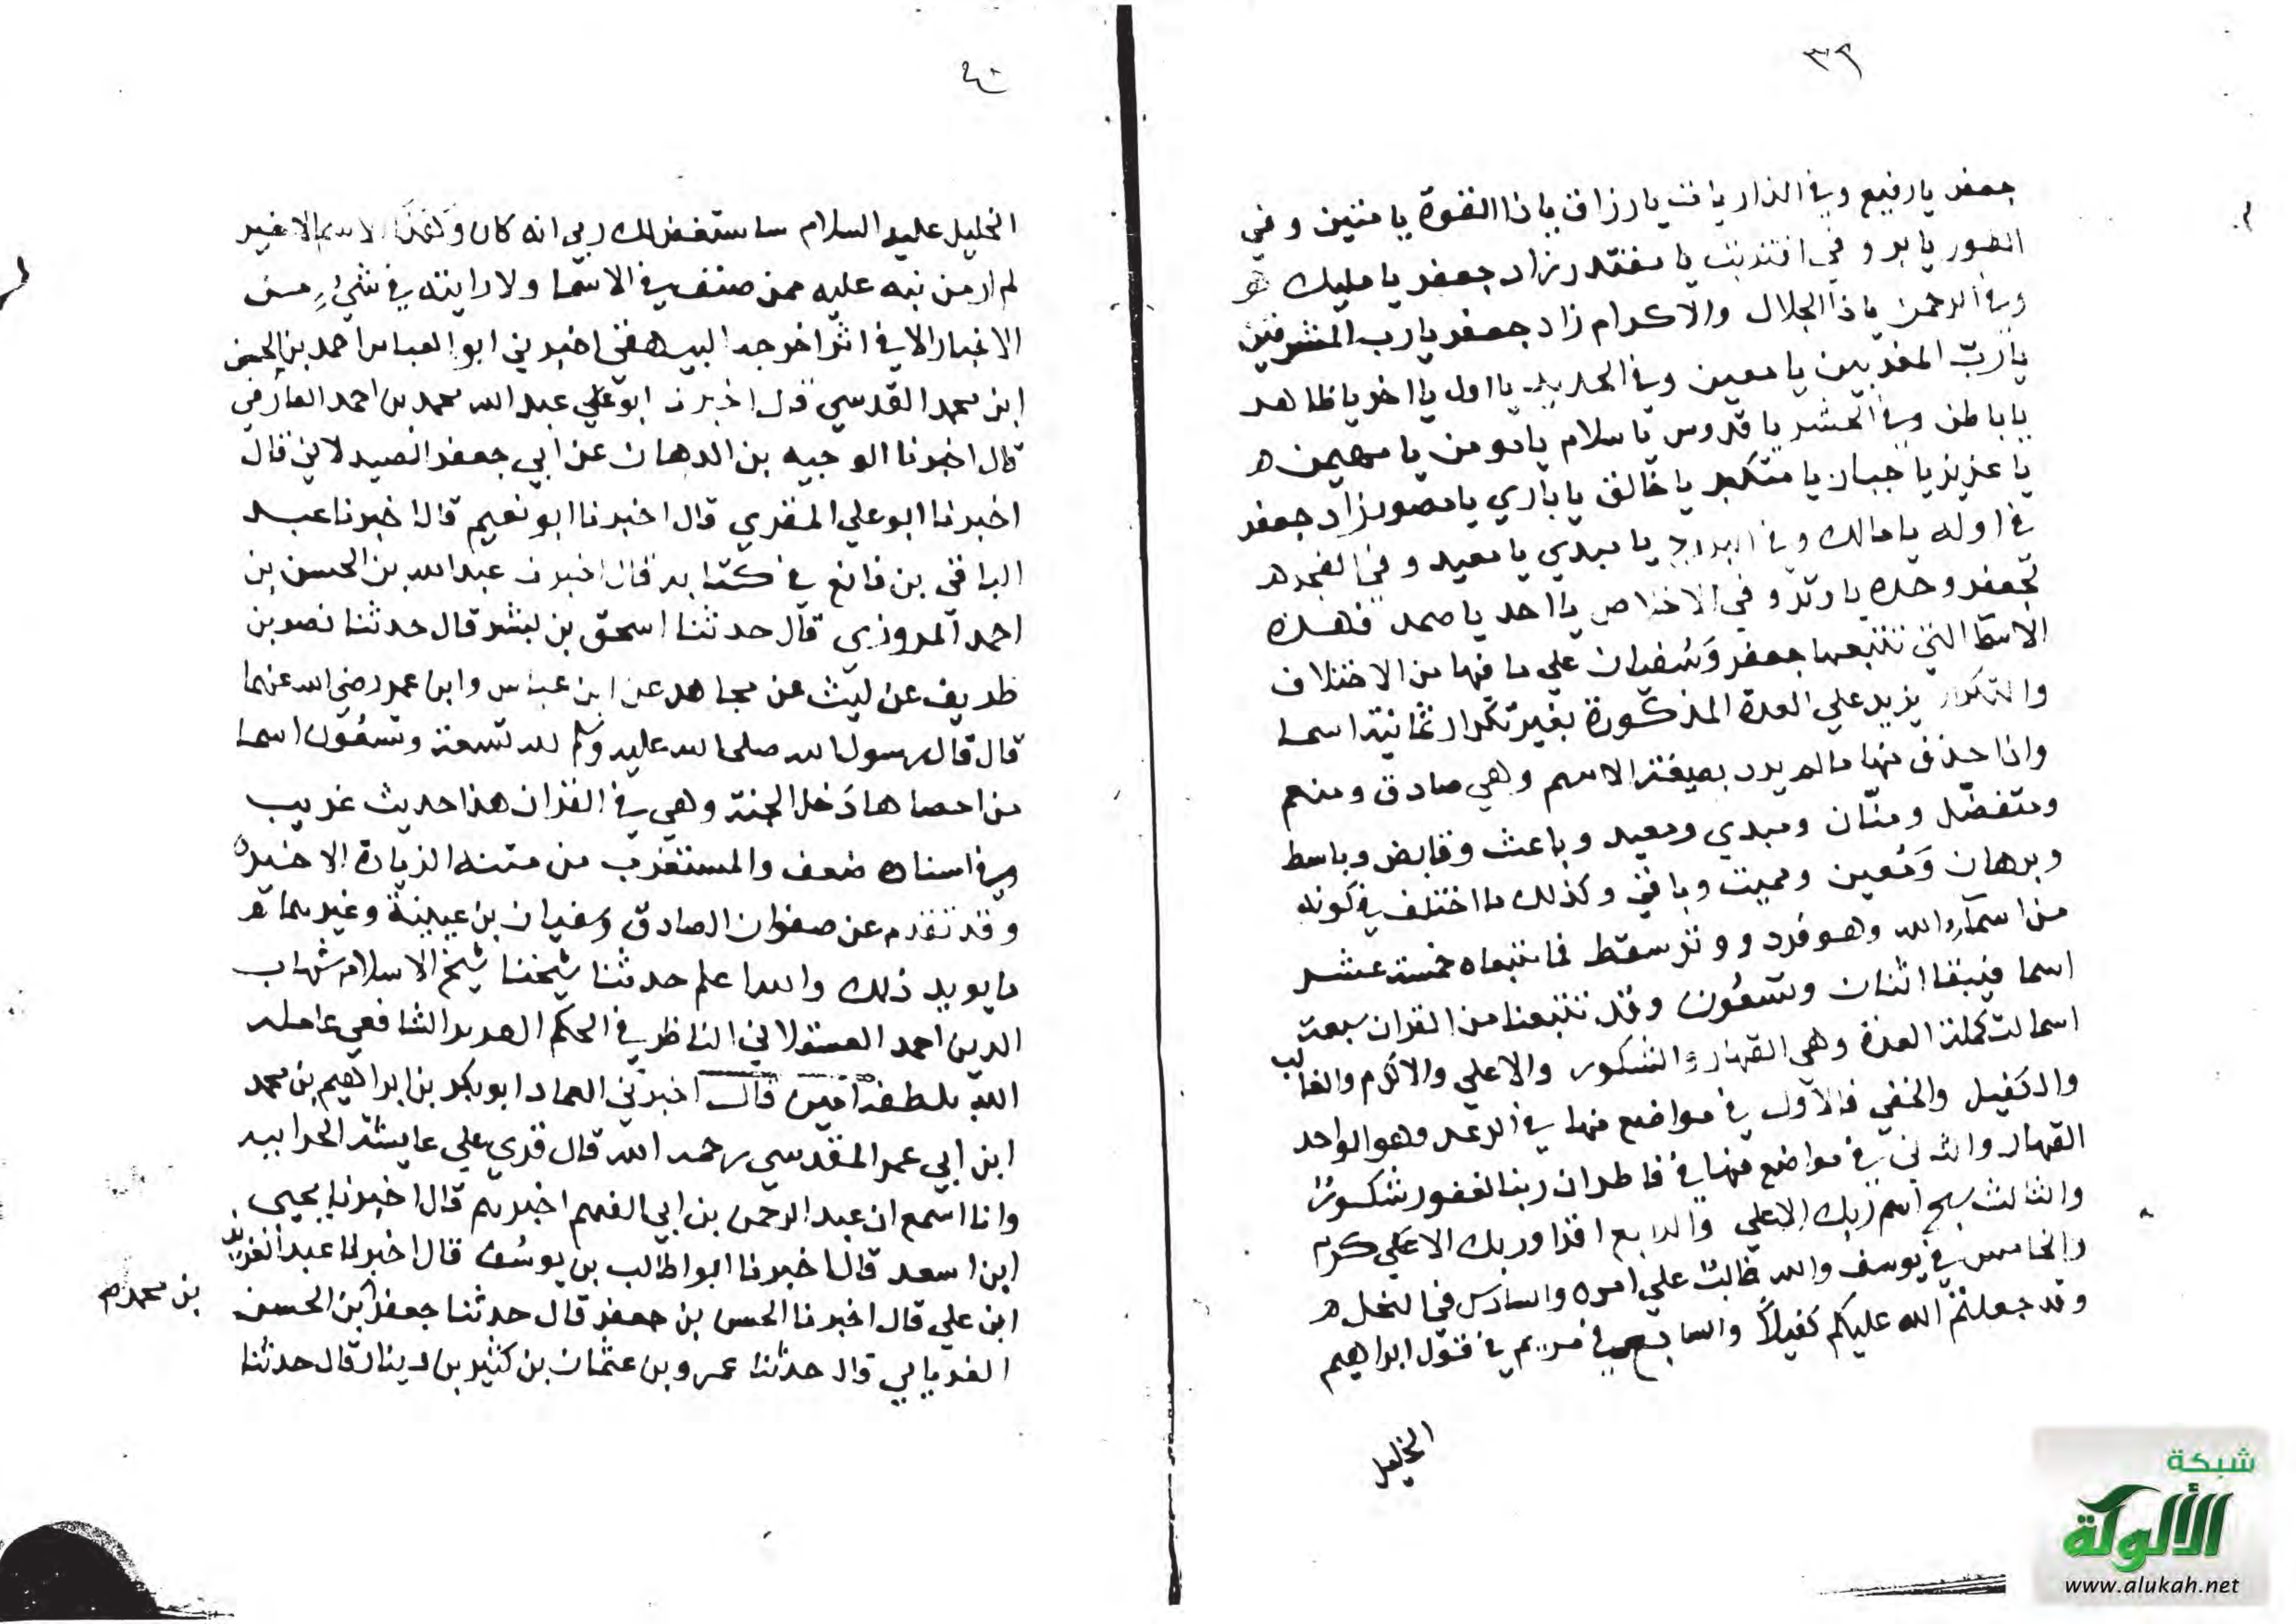 ٣٩
جعفر يا رفيع وفي الذاريات يا رزاق يا ذا القوة يا متين وفي
الطور يا بر وفي اقتربت يا مقتدر زاد جعفر يا مليك
وفي الرحمن يا ذا الجلال والاكرام زاد جعفر يا رب المشرقين
يا رب المغربين يا معين وفي الحديد يا اول يا اخر يا ظاهر
يا باطن وفي الحشر يا قدوس يا سلام يا مومن يا مهيمن
يا عزيز يا جبار يا متكبر يا خالق يا باري يا مصور زاد جعفر
في اوله يا مالك وفي البروج يا مبدي يا معيد وفي الفجر
لجعفر وحده يا وتر وفي الاخلاص يا احد يا صمد فهذه
الاسما التي تتبعها جعفر وسفيان علي ما فيها من الاختلاف
والتكرار يزيد علي العدة المذكورة بغير تكرار ثمانية اسما
واذا حذف منها ما لم يرد بصيغة الاسم وهي صادق ومنعم
ومتفضل ومنان ومبدي ومعيد وباعث وقابض وباسط
وبرهان ومعين ومميت وباقي وكذلك ما اختلف في كونه
من اسماء الله وهو فرد ووتر سقط مما تتبعاه خمسة عشر
اسما فيبقا اثنان وتسعون وقد تتبعنا من القران سبعة
اسما لتكملة العدة وهي القهار والشكور والاعلي والاكرم والغالب
والكفيل والخفي فالاول في مواضع منها في الرعد وهو الواحد
القهار والثاني في مواضع منها في فاطر ان ربنا لغفور شكور
والثالث سبح اسم ربك الاعلي والرابع اقرا وربك الاكرم
والخامس في يوسف والله غالب علي امره والسادس في النحل
وقد جعلتم الله عليكم كفيلا والسابع في مريم في قول ابراهيم
الخليل
٤٠
الخليل عليه السلام ساستغفر لك ربي انه كان وهذا الاسم الاخير
لم ار من نبه عليه ممن صنف في الاسما ولا رايته في شيء من
الاخبار الا في اثر اخرجه البيهقي اخبرني ابو العباس احمد بن الحسن
ابن محمد القدسي قال اخبرنا ابو علي عبد الله محمد بن احمد الفارقي
قال اخبرنا الوجيه بن الدهان عن ابي جعفر الصيدلاني قال
اخبرنا ابو علي المقري قال اخبرنا ابو نعيم قال اخبرنا عبد
الباقي بن قانع في كتابه قال اخبرنا عبد الله بن الحسن بن
احمد المروزي قال حدثنا اسحق بن بشر قال حدثنا نصر بن
طريف عن ليث عن مجاهد عن ابن عباس وابن عمر رضي الله عنهما
قال قال رسول الله صلى الله عليه وسلم لله تسعة وتسعون اسما
من احصاها دخل الجنة وهي في القران هذا حديث غريب
وفي اسناده ضعف والمستغرب من متنه الزيادة الاخيرة
وقد تقدم عن صفوان الصادق وسفيان بن عيينة وغيرهما
ما يويد ذلك والله اعلم حدثنا شيخنا شيخ الاسلام شهاب
الدين احمد العسقلاني الناظر في الحكم الشافعي عامله
الله بلطفه امين قال اخبرني العماد ابو بكر بن ابراهيم بن محمد
ابن ابي عمر المقدسي رحمه الله قال قري علي عايشة الحرانيه
وانا اسمع ان عبد الرحمن بن ابي الفهم اخبرهم قال اخبرنا يحيى
ابن اسعد قال اخبرنا ابو طالب بن يوسف قال اخبرنا عبد العزيز
ابن علي قال اخبرنا الحسن بن جعفر قال حدثنا جعفر بن الحسن
بن محمد صح
الفريابي قال حدثنا عمرو بن عثمان بن كثير بن دينار قال حدثنا
شبكة
الألوكة
www.alukah.net